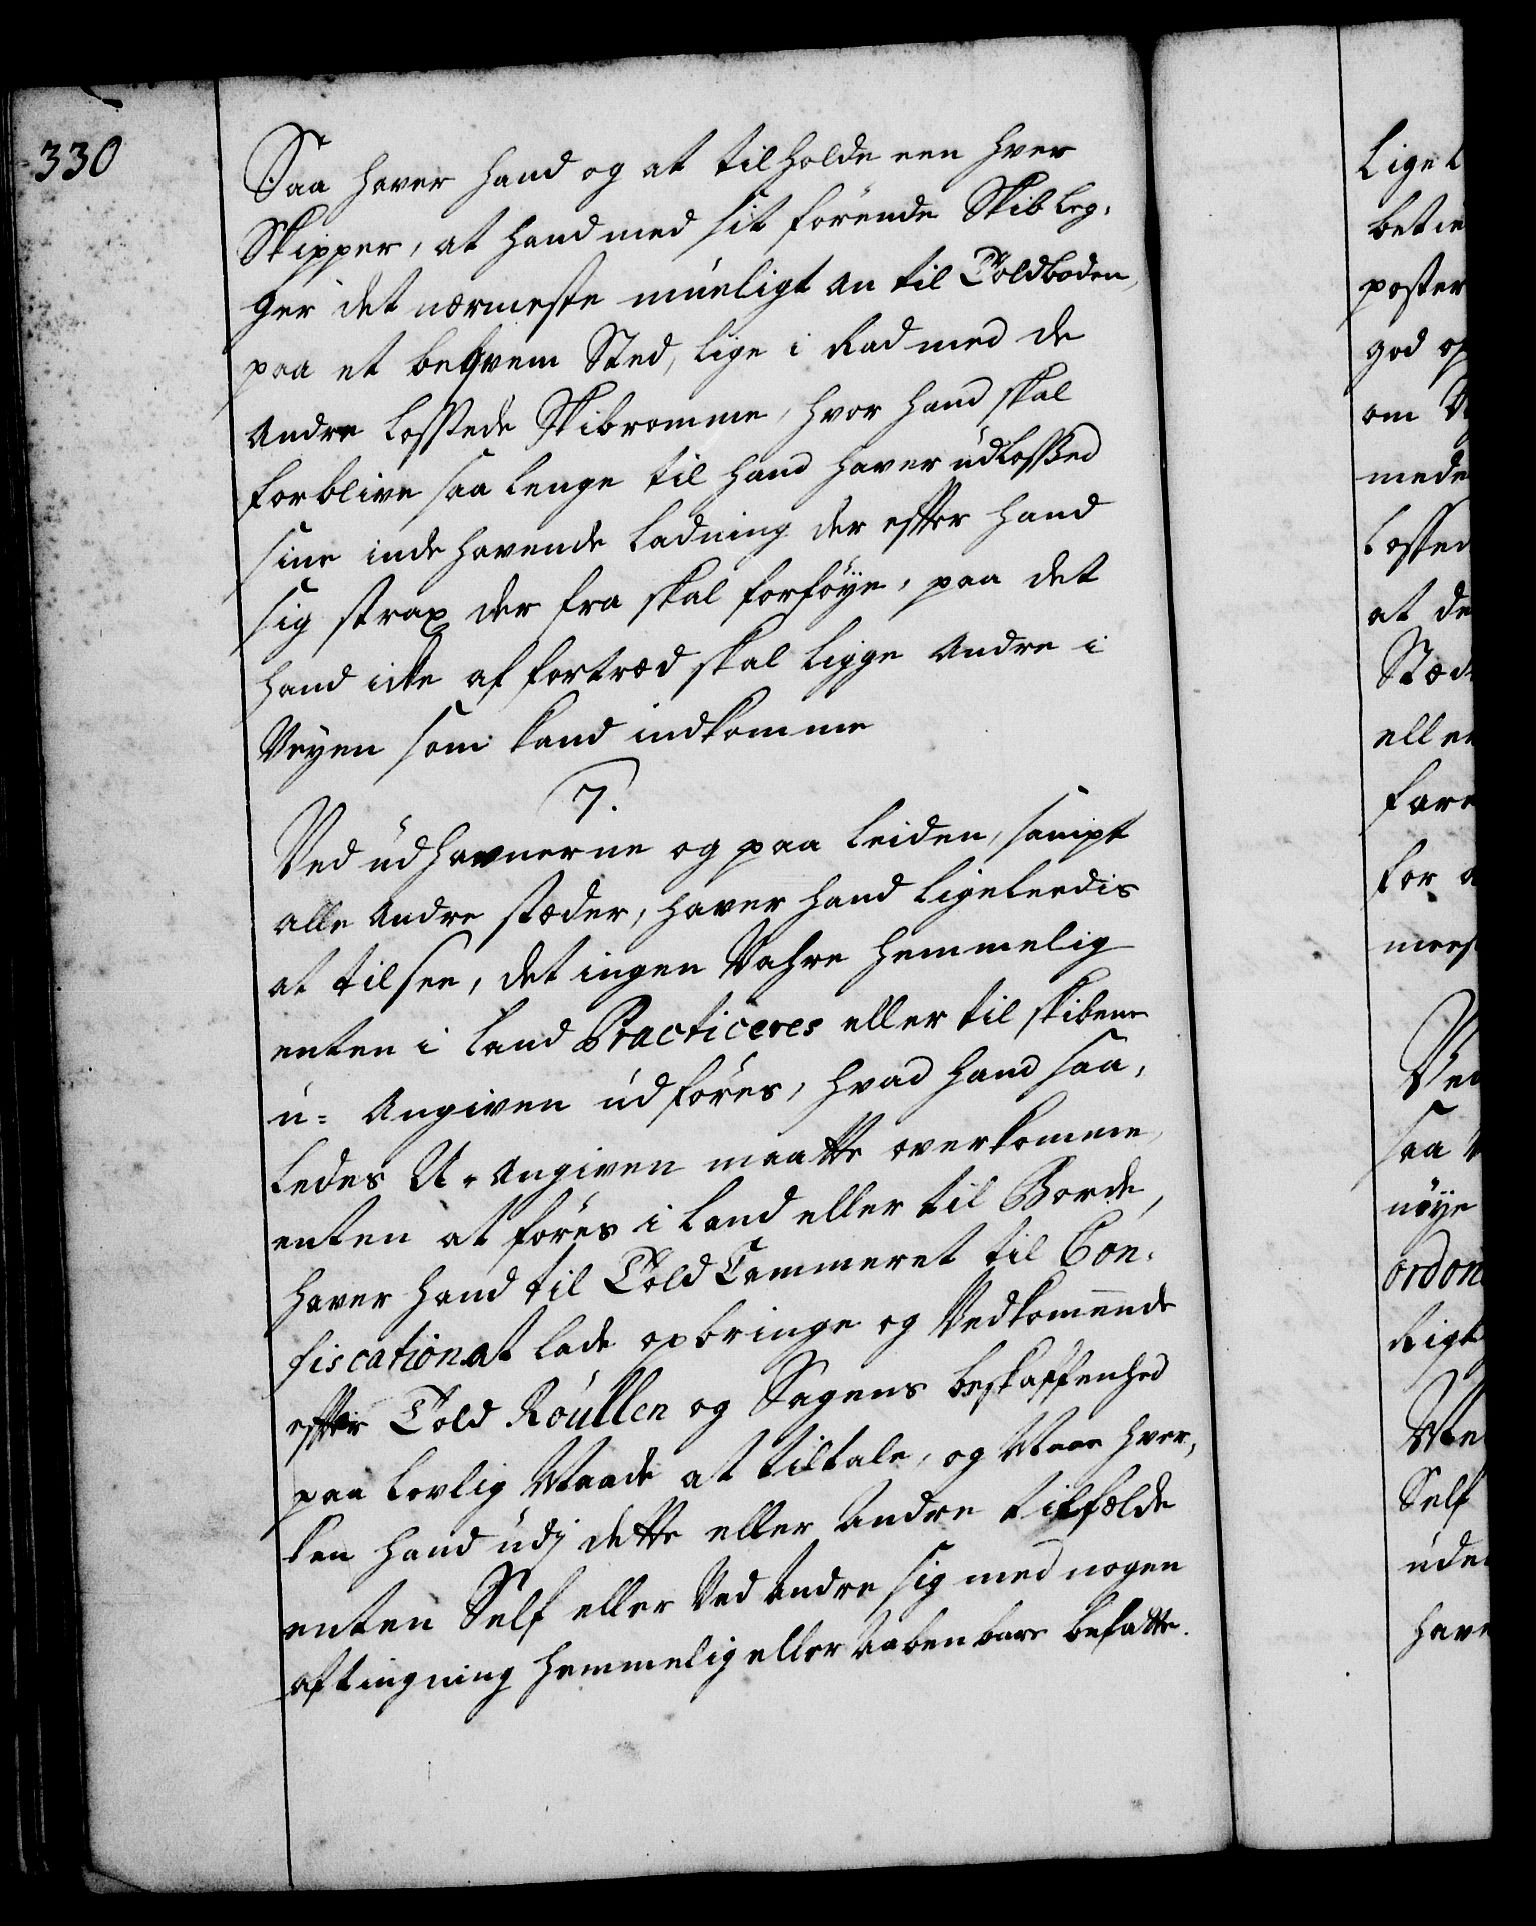 330
Saa haver hand og at tilholde een hver
Skipper, at hand med sit förende Skib leg,
ger det nærmeste müeligt an til Toldboden,
paa et beqvem Sted, lige i Rad med de
andre Lossede Skibromme, hvor hand skal
forblive saa lenge til hand haver üdlosshed
sine indehavende Ladning der effter hand
sig strax der fra skal forföye, paa det
hand icke af fortræd skal ligge andre i
Veyen som kand indkomme
7.
Ved üdhavnerne og paa Leiden, sampt
alle andre stæder, haver hand ligeleedis
at tilsee, det ingen Vahre hemmelig
enten i Land Practiceres eller til skibene
u= Angiven üdföres, hvad hand saa,
ledes U-angiven maatte overkomme,
enten at föres i Land eller til Borde,
haver hand til Told Cammeret til Con,
fiscation at lade opbringe og Vedkommende
effter Told Roullen og Sagens beskaffenhed
paa lovlig Maade at tiltale, og Maae hver,
ken hand üdj dette eller andre tilfælde
enten Self eller Ved andre sig med nogen
aftingning hemmelig eller aabenbare befatte.
Lige l
betie
poster
god op
om
mede
Lossed
at de
Stæd
eller
fare
for a
meest
Ved
saa
nöye
ordon
Rigt
Me
Self
üden
have